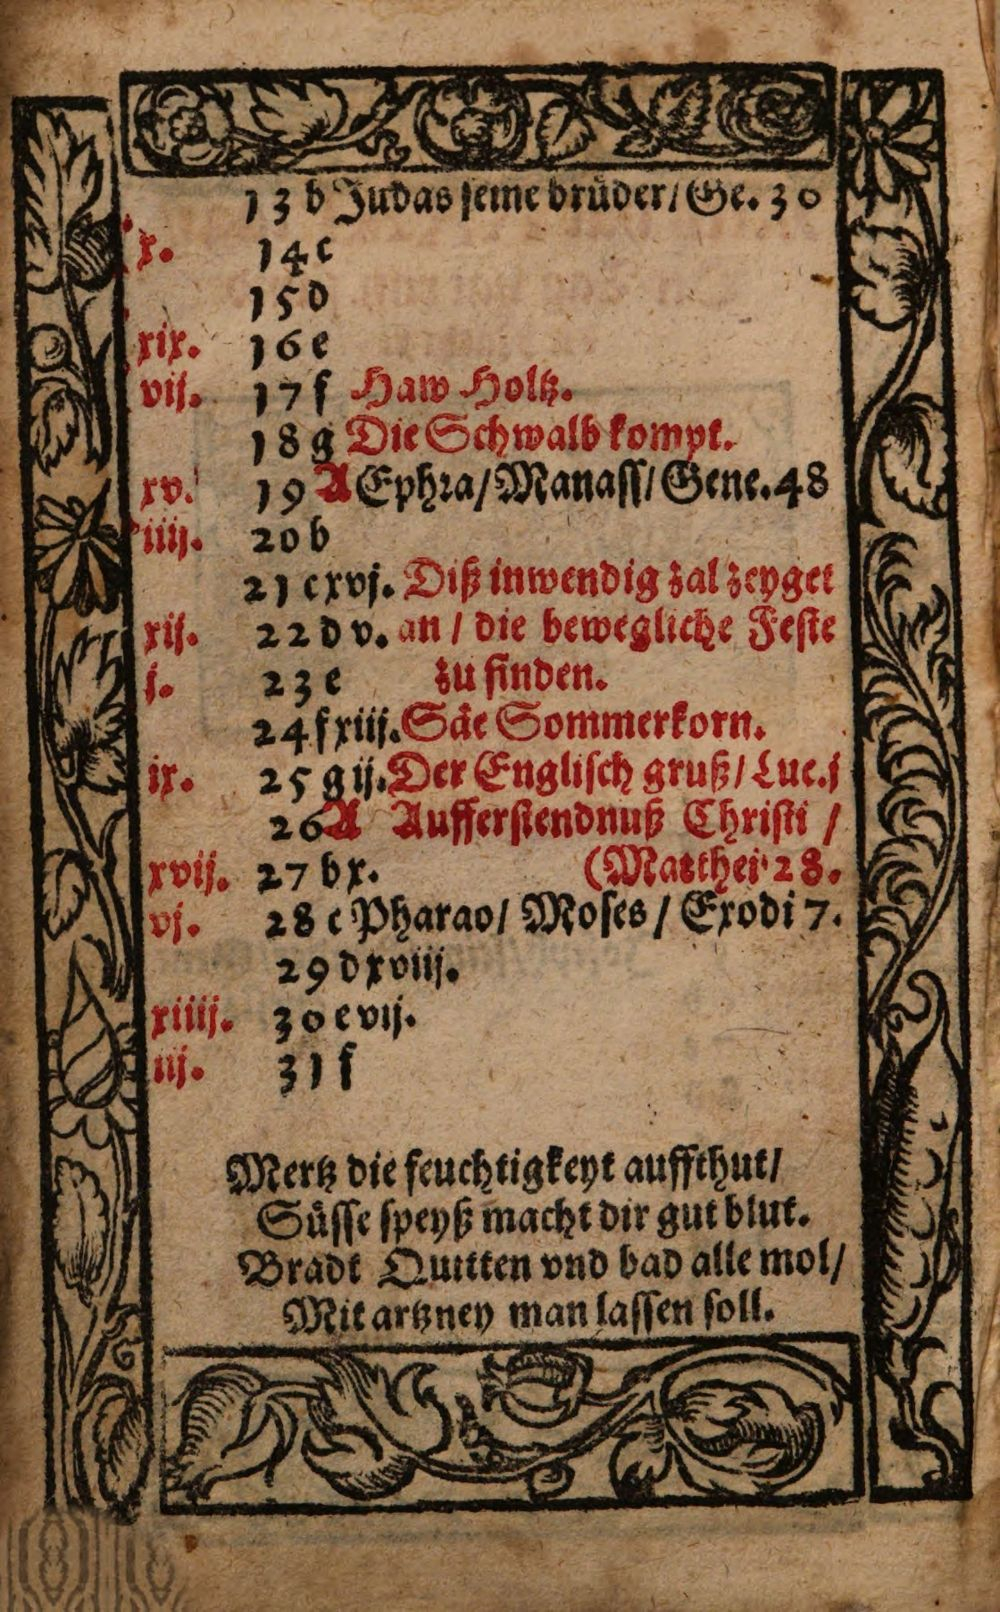 13 b Judas seine brüder / Ge. 30
x. 14 c
15 d
xix. 16 e
vij. 17 f Haw Holtz.
18 g Die Schwalb kompt.
xv. 19 A Ephra / Manass / Gene. 48
iiij. 20 b
21 c xvj. Diß inwendig zal zeyget
xij. 22 d v. an / die bewegliche Feste
j. 23 e zu finden.
24 f xiij. Säe Sommerkorn.
ix. 25 g ij. Der Englisch gruß / Luc. j
26 A Aufferstendnuß Christi /
xvij. 27 b x. (Matthei 28.
vj. 28 c Pharao / Moses / Exodi 7.
29 d xviij.
xiiij. 30 e vij.
iij. 31 f
Mertz die feuchtigkeyt auffthut /
Süsse speyß macht dir gut blut.
Bradt Quitten vnd bad alle mol /
Mit artzney man lassen soll.